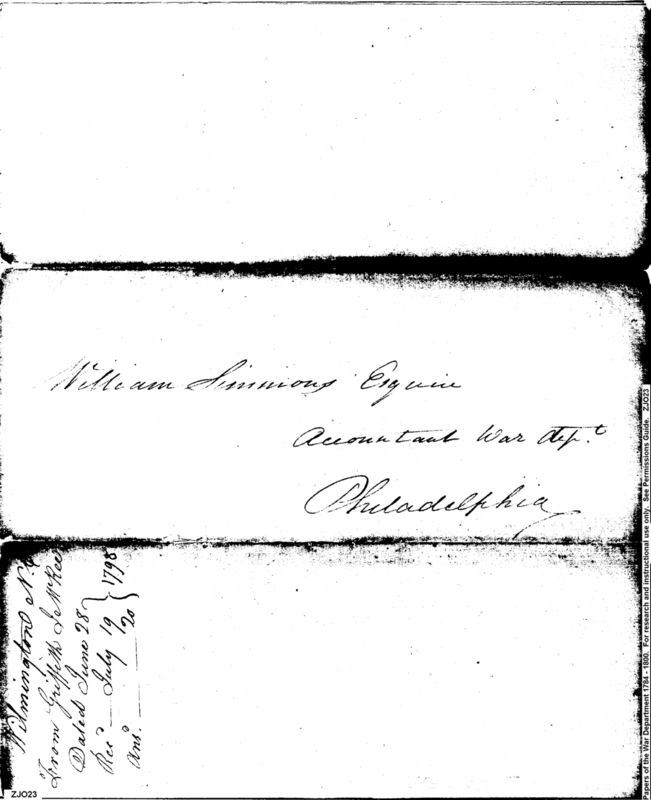 William Simmons Esquire
Accountant War dept.
Philadelphia
Wilmington N.C
From Griffith J McRee
Dated June 28 } 1798
Recd — July 19
Ans. — 20
ZJO23
Papers of the War Department 1784 - 1800. For research and instructional use only. See Permissions Guide. ZJO23